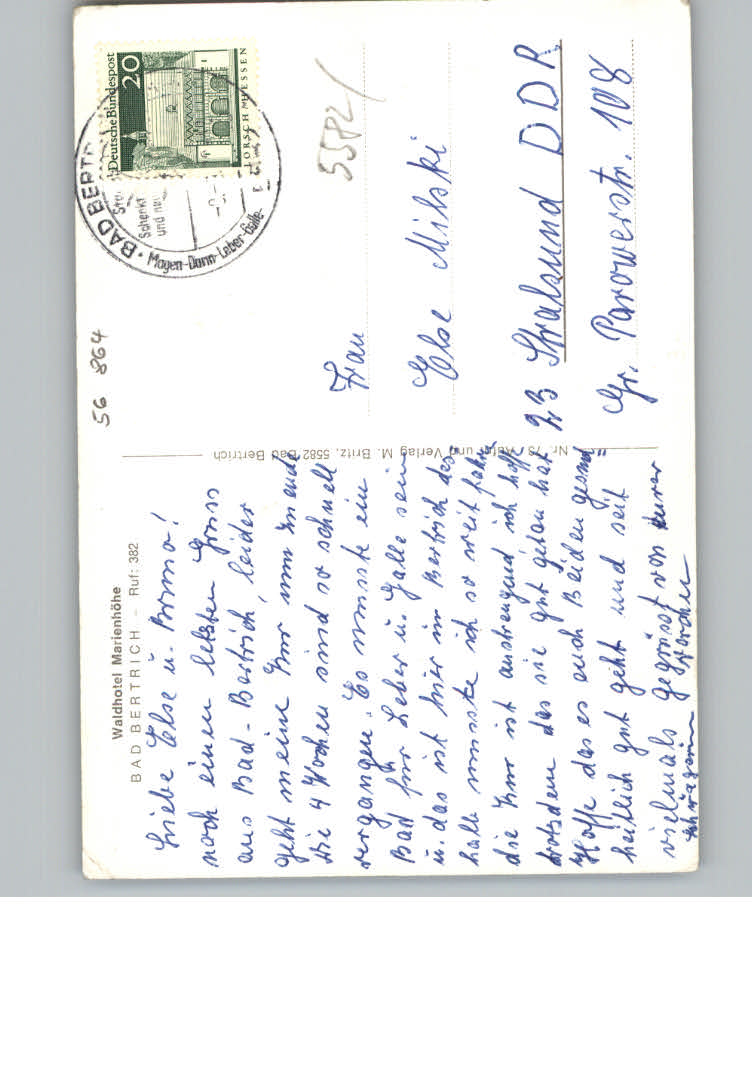 Waldhotel Marienhöhe
BAD BERTRICH – Ruf: 382
Liebe Else u. Bruno!
noch einen letzten Gruss
aus Bad-Bertrich, leider
geht meine Kur nun zu ende
die 4 Wochen sind so schnell
vergangen. Es musste ein
Bad für Leber u. Galle sein
u. das ist hier in Bertrich des
halb musste ich so weit fahren
die Kur ist anstrengend ich hoffe
trotzdem das sie gut getan hat
Hoffe das es euch Beiden gesund
heitlich gut geht und seit
vielmals gegrüsst von eurer
Schwägerin
Nr. 73 Verlag M. Britz, 5582 Bad Bertrich
56 864
5582/
Deutsche Bundespost
20
LORSCH HESSEN
BAD BERTR
Schenkt
und neu
Magen-Darm-Leber-Galle-
Frau
Else Milski
23 Stralsund DDR
Gr. Parowerstr. 108